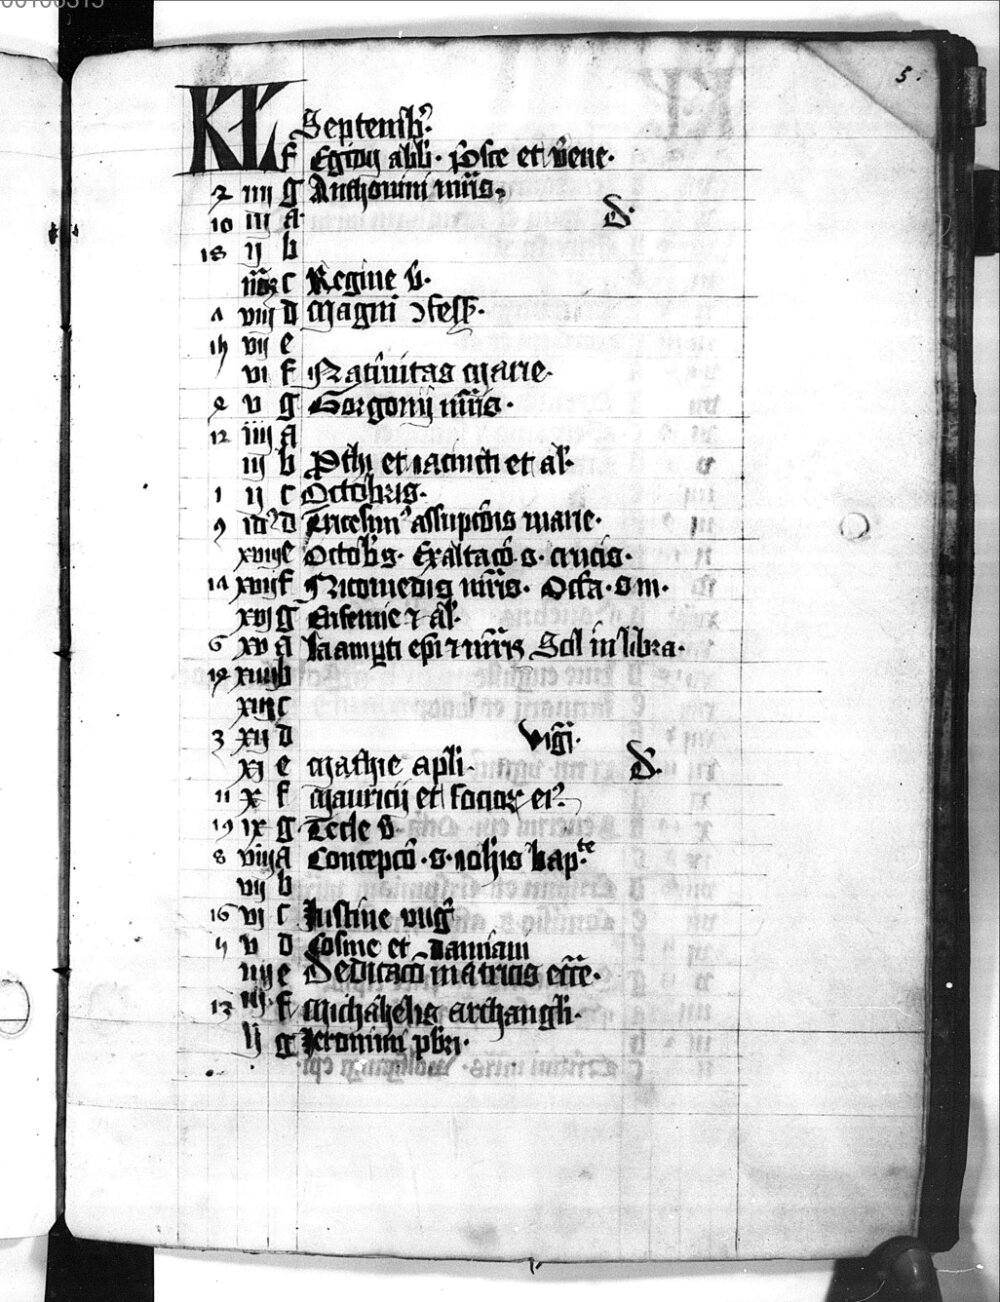 5.
KL Septembr̉.
f Egidij abb̄. Posce et bene.
2 iiij g Anthonini mr̄is.
10 iij a D.
18 ij b
noā c Regine v̄.
viij d Magni ɔfess̄.
vij e
vi f Natiuitas marie.
v g Gorgonij mr̄is.
12 iiij a
iij b Prothi et iacincti et al̄.
1 ij c Octobris.
9 id̉ d Tricesim̉ assūpcōis marie.
xviij e Octob̄s. Exaltacō s. crucis.
14 xvij f Nicomedis mr̄is. Octa. s m.
xvj g Eufemie ⁊ al̄.
6 xv a Lamp̱ti ep̄i ⁊ mr̄is Sol in libra.
xiiij b
xiij c
3 xij d vigī.
xj e Mathie apl̄i. D.
11 x f Mauricij et socioꝝ eỉ.
19 ix g Tecle v̄.
8 viij a Concepcō s. ioh̄is bap.te
vij b
16 vj c Iustine virḡ
v d Cosme et Damiani
iiij e Dedicacō matricis ecc̄e.
13 iij f Michahelis archangl̄i.
ij g Jeronimi pbr̄i.